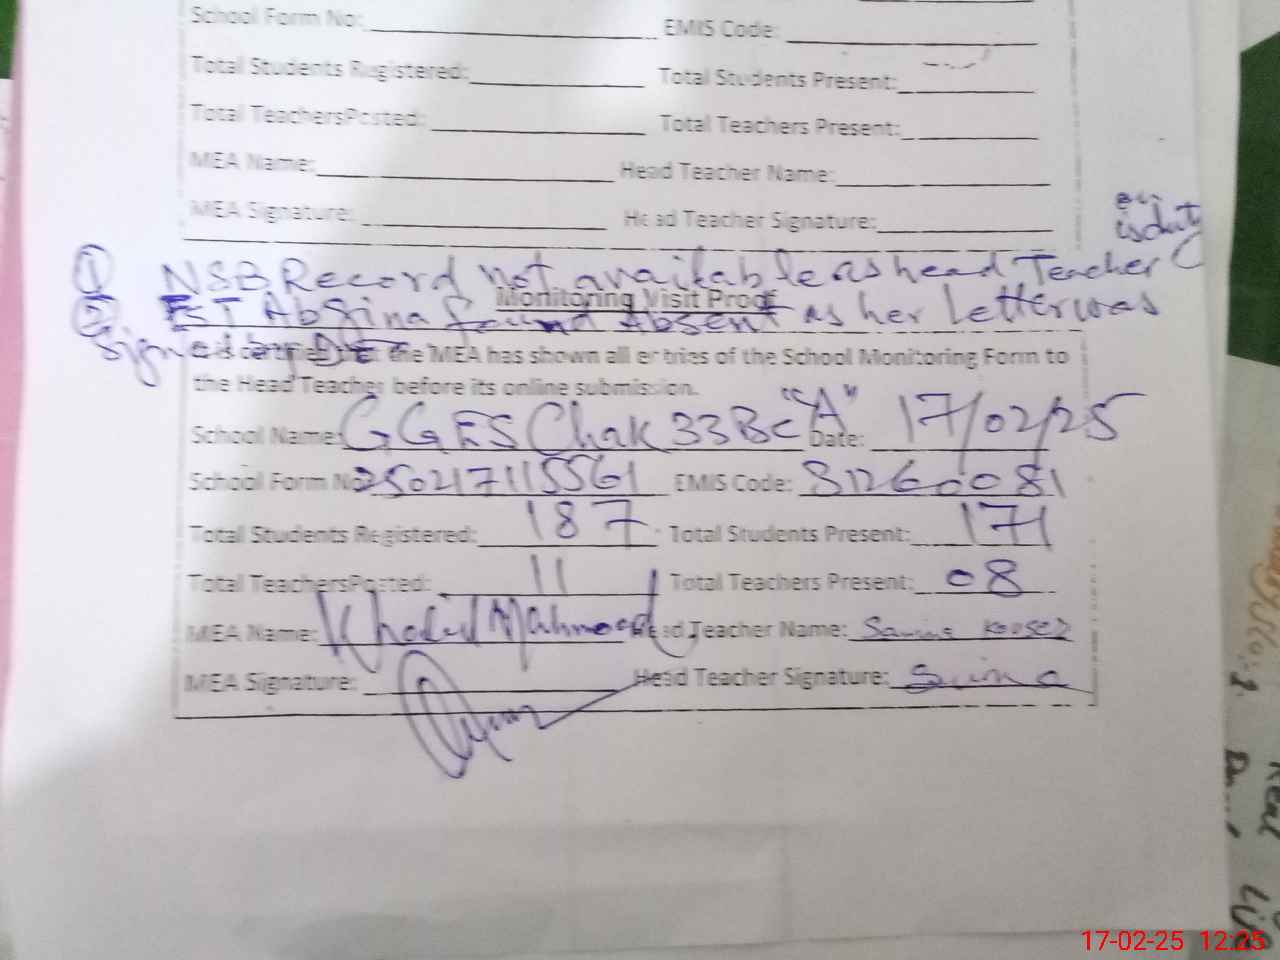 School Form No: EMIS Code:
Total Students Registered: Total Students Present:
Total TeachersPosted: Total Teachers Present:
MEA Name: Head Teacher Name:
MEA Signature: Head Teacher Signature:
① NSB Record not available as head Teacher is duty
Monitoring Visit Proof
② EST Absina found Absent as her Letter was
signed by
the MEA has shown all entries of the School Monitoring Form to
the Head Teacher before its online submission.
School Name: GGES Chak 33 BC "A" Date: 17/02/25
School Form No 250217115561 EMIS Code: 31260081
Total Students Registered: 187 Total Students Present: 171
Total TeachersPosted: 11 Total Teachers Present: 08
MEA Name: Khalid Mahmood Head Teacher Name: Samina Kouser
MEA Signature: Head Teacher Signature:
17-02-25 12:25